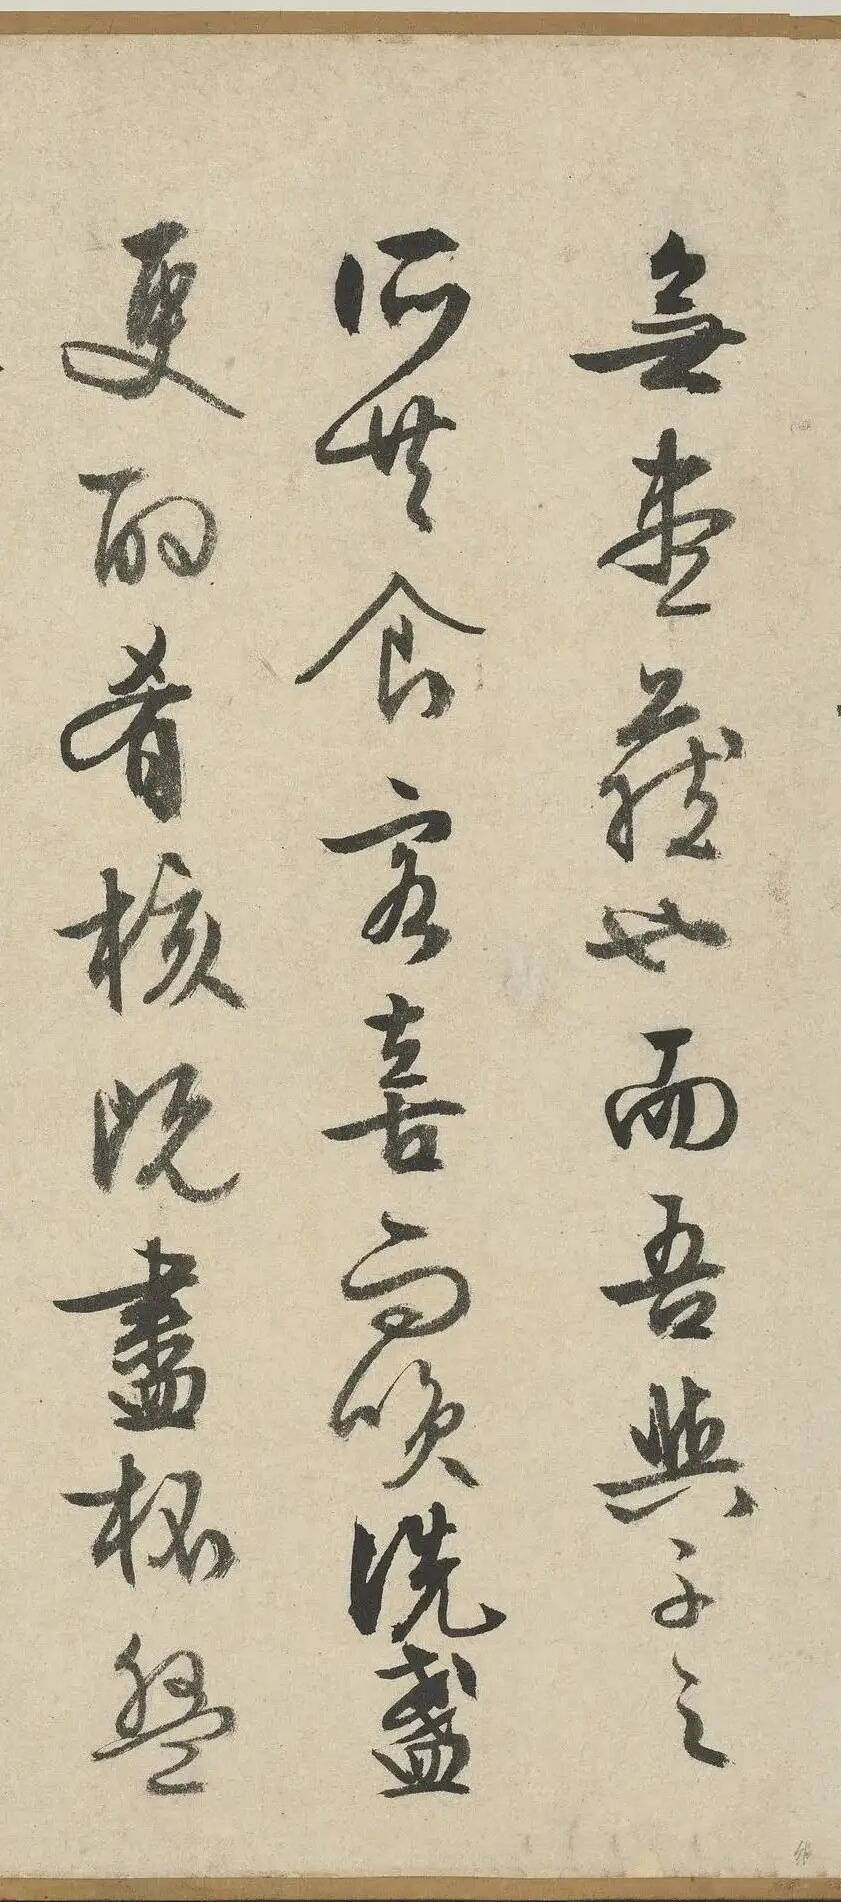 無盡藏也而吾與子之
所共食客喜而笑洗盞
更酌肴核既盡杯盤